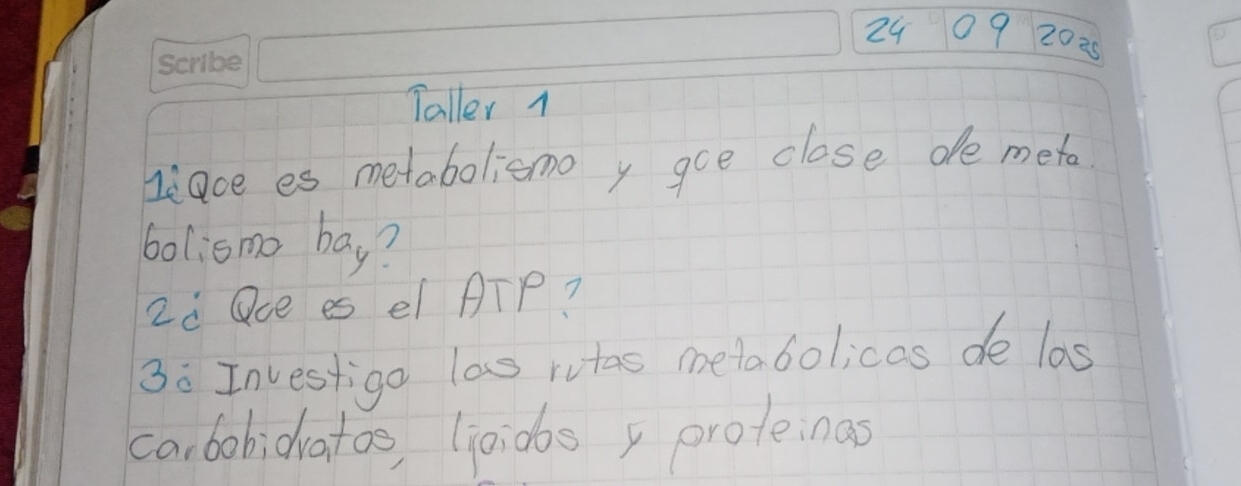 Scribe
24 09 2025
Taller 1
1¿Qce es metabolismo y qce clase de meta
bolismo hay?
2¿ Qce es el ATP?
3¿ Investiga las rutas metabolicas de los
carbohidratos, lipidos y proteinas